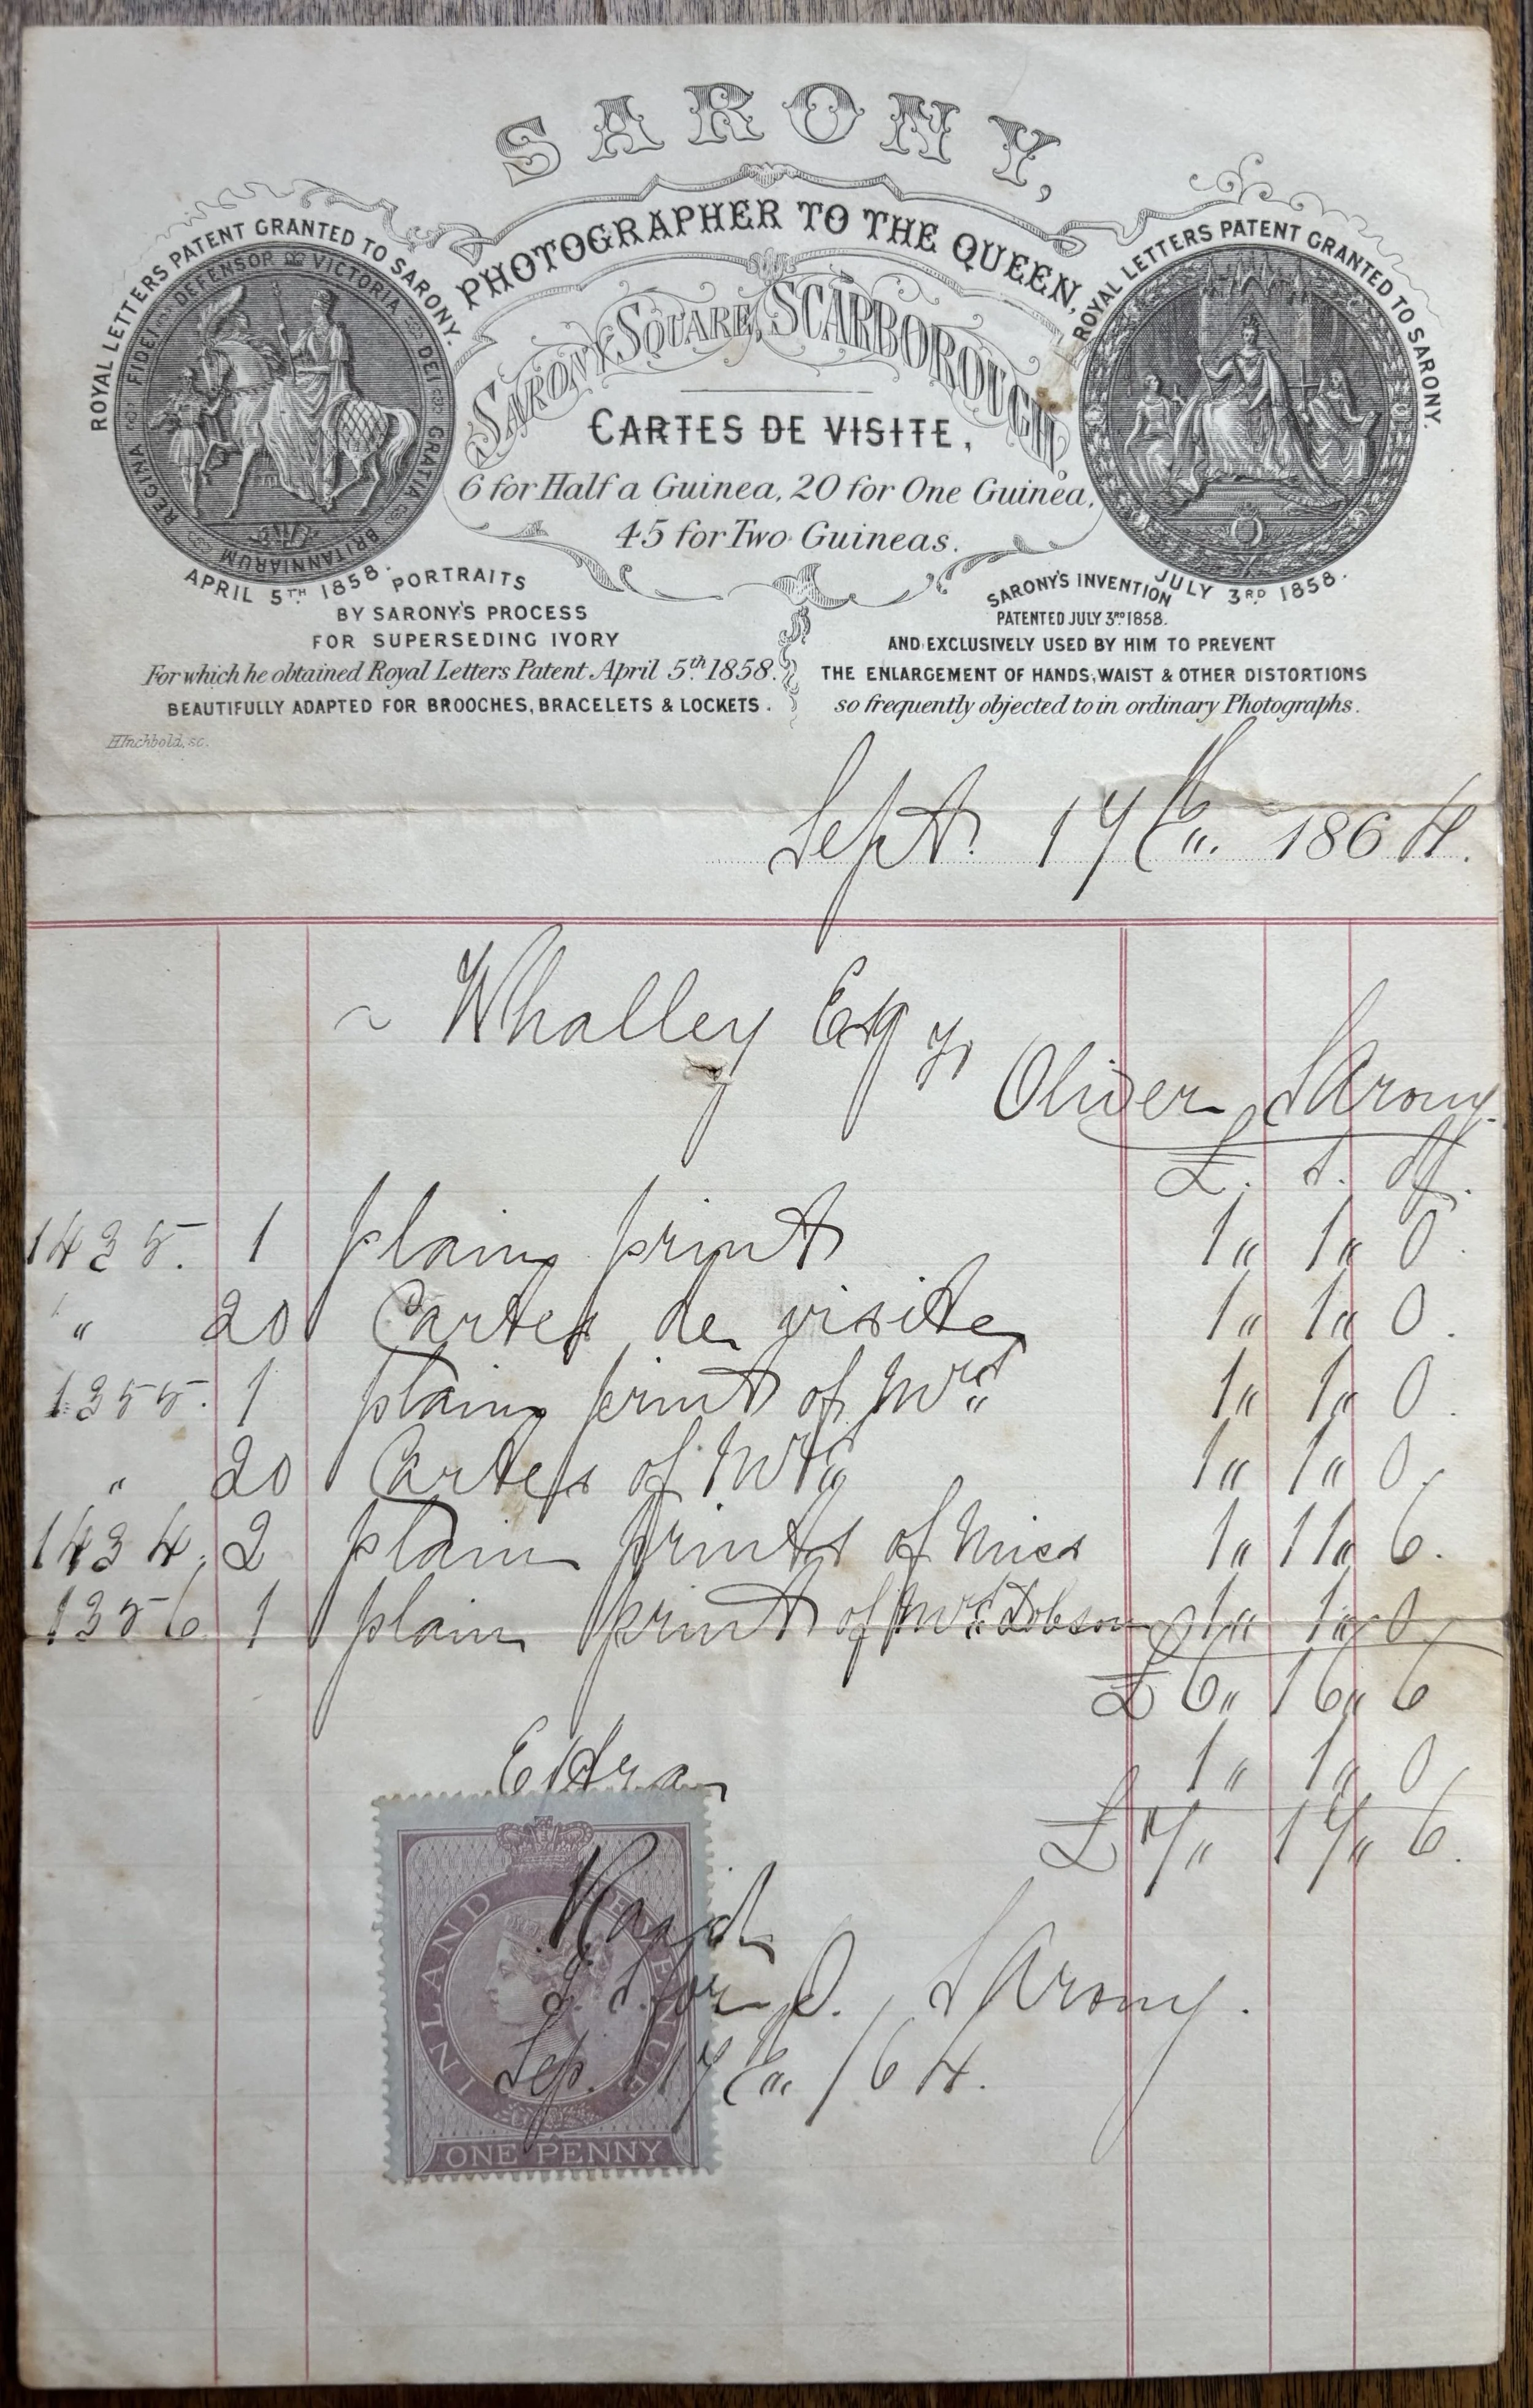 SARONY,
PHOTOGRAPHER TO THE QUEEN,
SARONY SQUARE, SCARBOROUGH.
ROYAL LETTERS PATENT GRANTED TO SARONY.
VICTORIA DEI GRATIA BRITANNIARUM REGINA FIDEI DEFENSOR
APRIL 5TH 1858.
ROYAL LETTERS PATENT GRANTED TO SARONY.
JULY 3RD 1858.
CARTES DE VISITE,
6 for Half a Guinea, 20 for One Guinea,
45 for Two Guineas.
PORTRAITS
BY SARONY'S PROCESS
FOR SUPERSEDING IVORY
For which he obtained Royal Letters Patent April 5th 1858.
BEAUTIFULLY ADAPTED FOR BROOCHES, BRACELETS & LOCKETS.
SARONY'S INVENTION
PATENTED JULY 3RD 1858.
AND EXCLUSIVELY USED BY HIM TO PREVENT
THE ENLARGEMENT OF HANDS, WAIST & OTHER DISTORTIONS
so frequently objected to in ordinary Photographs.
H Inchbold, sc.
Sept. 17th 1864.
~ Whalley Esq
Oliver Sarony
£. s. d.
1435. 1 plain print 1 " 1 " 0.
" 20 Cartes de visite 1 " 1 " 0.
1355. 1 plain print of Mrs 1 " 1 " 0.
" 20 Cartes of Mrs 1 " 1 " 0.
1434. 2 plain prints of Miss 1 " 11 " 6.
1356 1 plain print of Mrs Dobson 1 " 1 " 0
£6 " 16 " 6
Extra 1 " 1 " 0
£7 " 17 " 6.
INLAND REVENUE
ONE PENNY
for O. Sarony.
Sep. 17th /64.